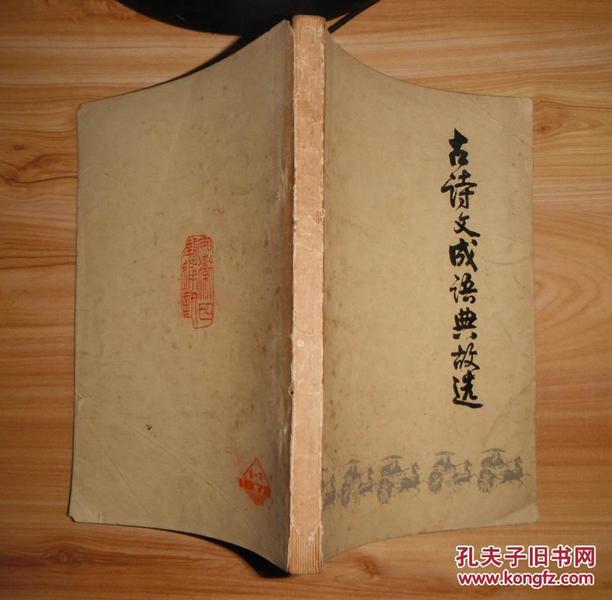 古诗文成语典故选
孔夫子旧书网
www.kongfz.com